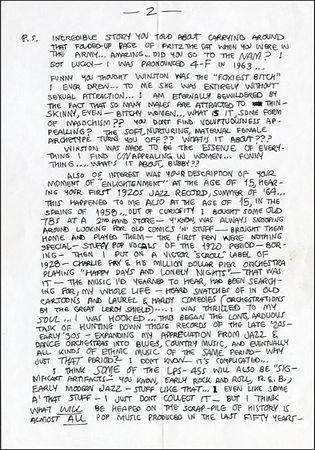 — 2 —
P.S. INCREDIBLE STORY YOU TOLD ABOUT CARRYING AROUND
THAT FOLDED-UP PAGE OF FRITZ THE CAT WHEN YOU WERE IN
THE ARMY... AMAZING... DID YOU GO TO THE NAM? I
GOT LUCKY — I WAS PRONOUNCED 4-F IN 1963...
FUNNY YOU THOUGHT WINSTON WAS THE "FOXIEST BITCH"
I EVER DREW... TO ME SHE WAS ENTIRELY WITHOUT
SEXUAL ATTRACTION... I AM ETERNALLY BEWILDERED BY
THE FACT THAT SO MANY MALES ARE ATTRACTED TO THIN—
SKINNY, EVEN — BITCHY WOMEN... WHAT IS IT, SOME FORM
OF MASOCHISM?? YOU DON'T FIND VOLUPTUOUSNESS AP-
PEALLING? THE SOFT, NURTURING, MATERNAL FEMALE
ARCHETYPE TURNS YOU OFF?? WHAT'S IT ABOUT???
WINSTON WAS MADE TO BE THE ESSENCE OF EVERY-
THING I FIND UNAPPEALING IN WOMEN... FUNNY
THING... WHAT'S IT ABOUT, BUBBY??
ALSO OF INTEREST WAS YOUR DESCRIPTION OF YOUR
"MOMENT OF ENLIGHTENMENT" AT THE AGE OF 15, HEAR-
ING YOUR FIRST 1920s JAZZ RECORD, SUMMER OF '64...
THIS HAPPENED TO ME ALSO AT THE AGE OF 15, IN THE
SPRING OF 1958... OUT OF CURIOSITY I BOUGHT SOME OLD
78s AT A 2ND HAND STORE — Y'KNOW, WAS ALWAYS SNOOPING
AROUND LOOKING FOR OLD COMICS 'N' STUFF — BROUGHT THEM
HOME AND PLAYED THEM — THE FIRST FEW WERE NOTHING
SPECIAL — STUFFY POP VOCALS OF THE 1920 PERIOD — BOR-
ING — THEN I PUT ON A VICTOR "SCROLL" LABEL OF
1928 — CHARLIE FRY & HIS MILLION DOLLAR PIER ORCHESTRA
PLAYING "HAPPY DAYS AND LONELY NIGHTS" — THAT WAS
IT — THE MUSIC I'D YEARNED TO HEAR, HAD BEEN SEARCH-
ING FOR, MY WHOLE LIFE — HEARD SNATCHES OF IN OLD
CARTOONS AND LAUREL & HARDY COMEDIES (ORCHESTRATIONS
BY THE GREAT LEROY SHIELD).... I WAS THRILLED TO MY
SOUL... I WAS HOOKED... THUS BEGAN THE LONG, ARDUOUS
TASK OF HUNTING DOWN THOSE RECORDS OF THE LATE '20s—
EARLY '30s — EXPANDING MY APPRECIATION FROM JAZZ &
DANCE ORCHESTRAS INTO BLUES, COUNTRY MUSIC, AND EVENTUALLY
ALL KINDS OF ETHNIC MUSIC OF THE SAME PERIOD — WHY
JUST THAT PERIOD? I DON'T KNOW — IT'S COMPLICATED...
I THINK SOME OF THE LPS-45S WILL ALSO BE "SIG-
NIFICANT ARTIFACTS" — YOU KNOW, EARLY ROCK AND ROLL, R.&B.,
EARLY MODERN JAZZ — STUFF LIKE THAT... I EVEN LIKE SOME
A' THAT STUFF — I JUST DON'T COLLECT IT — BUT I THINK
WHAT WILL BE HEAPED ON THE SCRAP-PILE OF HISTORY IS
ALMOST ALL POP MUSIC PRODUCED IN THE LAST FIFTY YEARS—